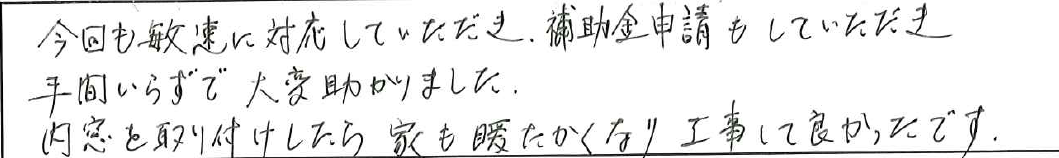 今回も敏速に対応していただき、補助金申請もしていただき
手間いらずで大変助かりました.
内窓を取り付けしたら家も暖たかくなり工事して良かったです.